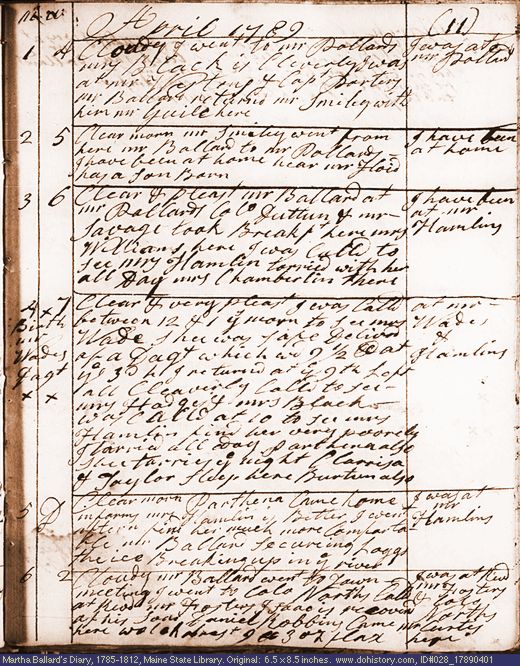 April 1789 (11)
1 4 Cloudy I went to mr Pollards I was at
mrs Black is Cleverly I was mr Pollard
at mr & Capt Porters
mr Ballard returnd mr Smiley with
him mr Guild here
2 5 Clear morn mr Smiley went from I have been
here mr Ballard to mr Pollards at home
I have been at home hear mr Floid
has a son Born
3 6 Clear & pleast mr Ballard at I have been
mr Pollards Colo Dutten & mr at mr
Savage took Breakft here mrs Hamlins
Williams here I was Calld to
see mrs Hamlin tarried with her
all Day mrs Chamberlin there
4 x 7 Clear & very pleast I was Calld at mr
Birth between 12 & 1 y morn to see mrs Wades
mr Wade shee was safe Delivrd &
Wades of a Dagt which wd 9 1/2 lb at Hamlins
Dagt 3 h I returned at 9th Left
x x all Cleaverly Calld to see
mrs Hodge & mrs Black
was Calld at 10 to see mrs
Hamlin find her very poorely
I tarried all day Parthena also
Shee tarries y night Clarrisa
& Taylor sleep here Burtun also
5 D Clear morn Parthena Came home I was at
informs mrs Hamlin is Better I went mr
find her much more Comforta Hamlins
ble mr Ballard secureing Loggs
the ice Breaking up in y river
6 2 Cloudy mr Ballard went to Town I was at Revd
meeting I went to Colo Norths Calld mr Fosters
at Revd mr Fosters Isaac is recover & Colo
at his Daniel Robbins Came Norths
here 3 oz flax here
Martha Ballard's Diary, 1785-1812, Maine State Library. Original: 6.5 x 8.5 inches. www.dohistory.com, ID#028_17890401